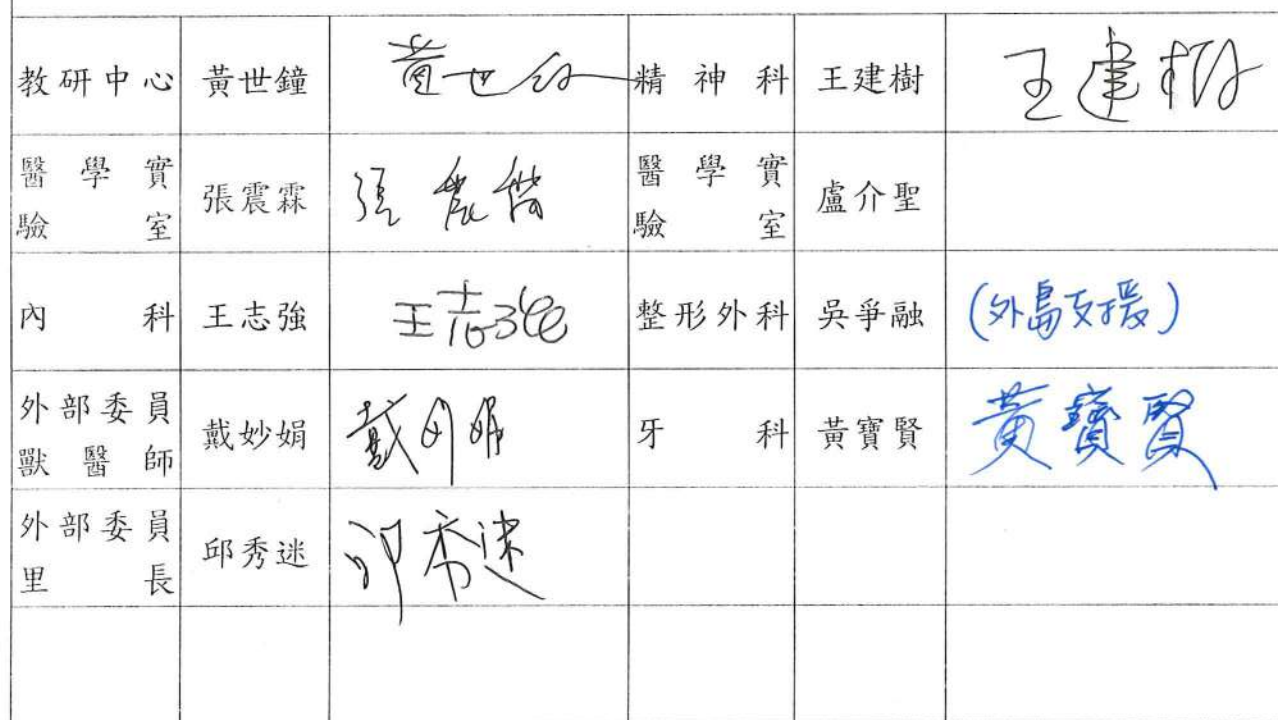 教研中心 黃世鐘 黃世 精神科 王建樹 王建樹
醫學實驗室 張震霖 張震 醫學實驗室 盧介聖
內科 王志強 王志強 整形外科 吳爭融 (外島支援)
外部委員獸醫師 戴妙娟 戴妙娟 牙科 黃寶賢 黃寶賢
外部委員里長 邱秀迷 邱秀迷